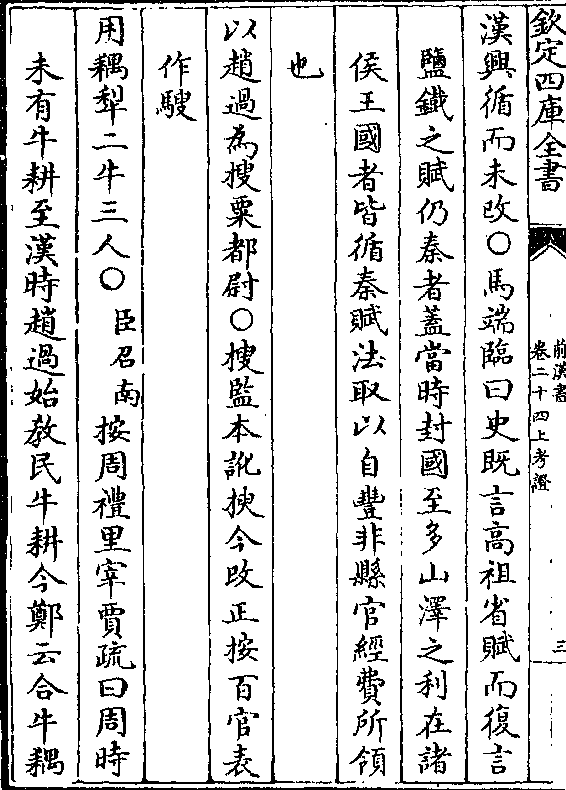 欽定四庫全書
前漢書
卷二十四上考證
三
漢興循而未改○馬端臨曰史既言高祖省賦而復言
鹽鐵之賦仍秦者蓋當時封國至多山澤之利在諸
侯王國者皆循秦賦法取以自豐非縣官經費所領
也
以趙過為搜粟都尉○搜監本訛挾今改正按百官表
作騪
用耦犁二牛三人○臣召南按周禮里宰賈疏曰周時
未有牛耕至漢時趙過始教民牛耕今鄭云合牛耦